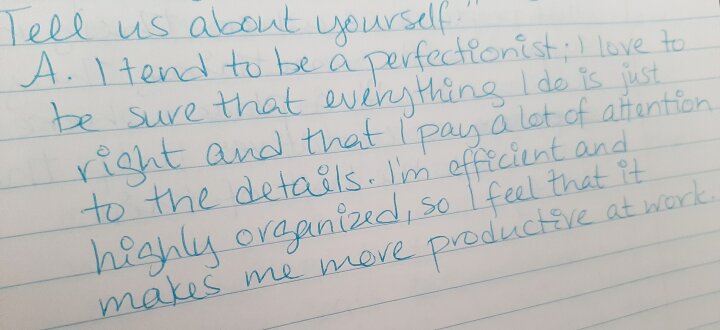 Tell us about yourself."
A. I tend to be a perfectionist; I love to
be sure that everything I do is just
right and that I pay a lot of attention
to the details. I'm efficient and
highly organized, so I feel that it
makes me more productive at work.